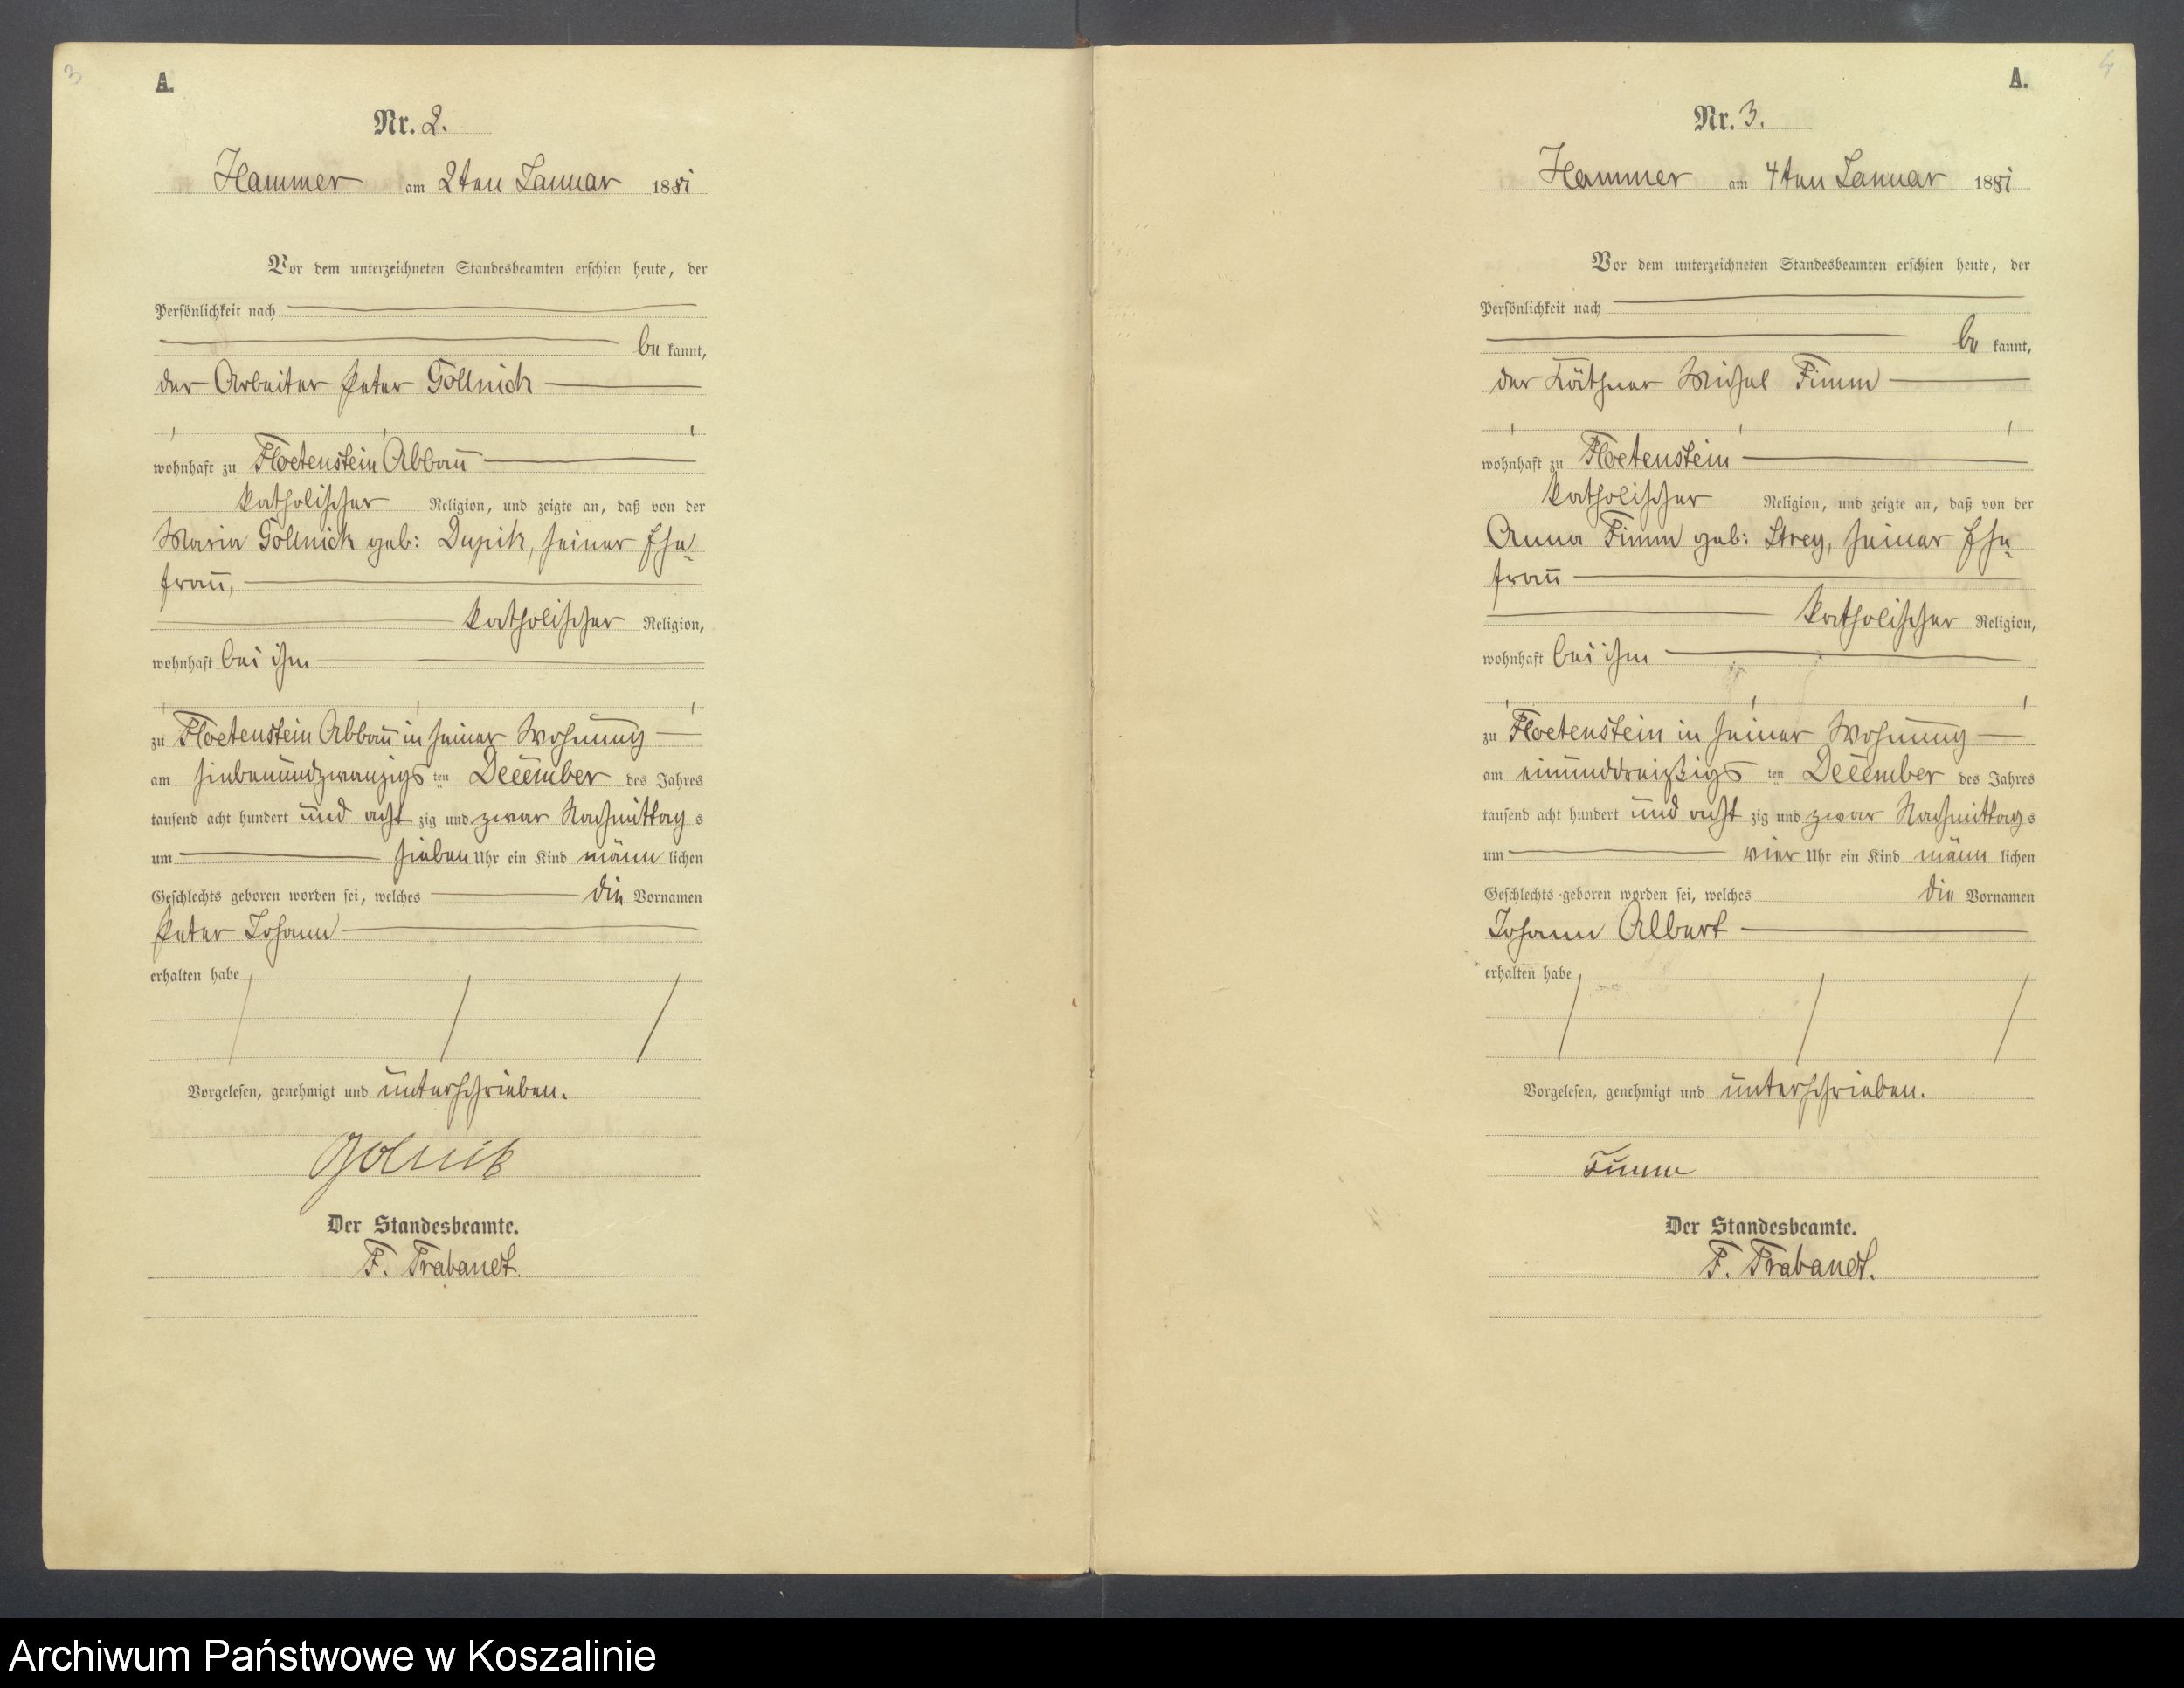 3
A.
Nr. 2.
Hammer am 2ten Januar 1881
Vor dem unterzeichneten Standesbeamten erschien heute, der
Persönlichkeit nach
be kannt,
der Arbeiter Peter Gollnick
wohnhaft zu Floetenstein Abbau
katholischer Religion, und zeigte an, daß von der
Maria Gollnick geb: Dupik, seiner Ehe-
frau,
katholischer Religion,
wohnhaft bei ihm
zu Floetenstein Abbau in seiner Wohnung
am siebenundzwanzigs ten December des Jahres
tausend acht hundert und acht zig und zwar Nachmittag s
um sieben Uhr ein Kind männ lichen
Geschlechts geboren worden sei, welches die Vornamen
Peter Johann
erhalten habe
Vorgelesen, genehmigt und unterschrieben.
Golnik
Der Standesbeamte.
F. Trabandt.
4
A.
Nr. 3.
Hammer am 4ten Januar 1881
Vor dem unterzeichneten Standesbeamten erschien heute, der
Persönlichkeit nach
be kannt,
der Käthner Michel Fimm
wohnhaft zu Floetenstein
katholischer Religion, und zeigte an, daß von der
Anna Fimm geb: Strey, seiner Ehe-
frau
katholischer Religion,
wohnhaft bei ihm
zu Floetenstein in seiner Wohnung
am einunddreißigs ten December des Jahres
tausend acht hundert und acht zig und zwar Nachmittag s
um vier Uhr ein Kind männ lichen
Geschlechts geboren worden sei, welches die Vornamen
Johann Albert
erhalten habe
Vorgelesen, genehmigt und unterschrieben.
Fimm
Der Standesbeamte.
F. Trabandt.
Archiwum Państwowe w Koszalinie